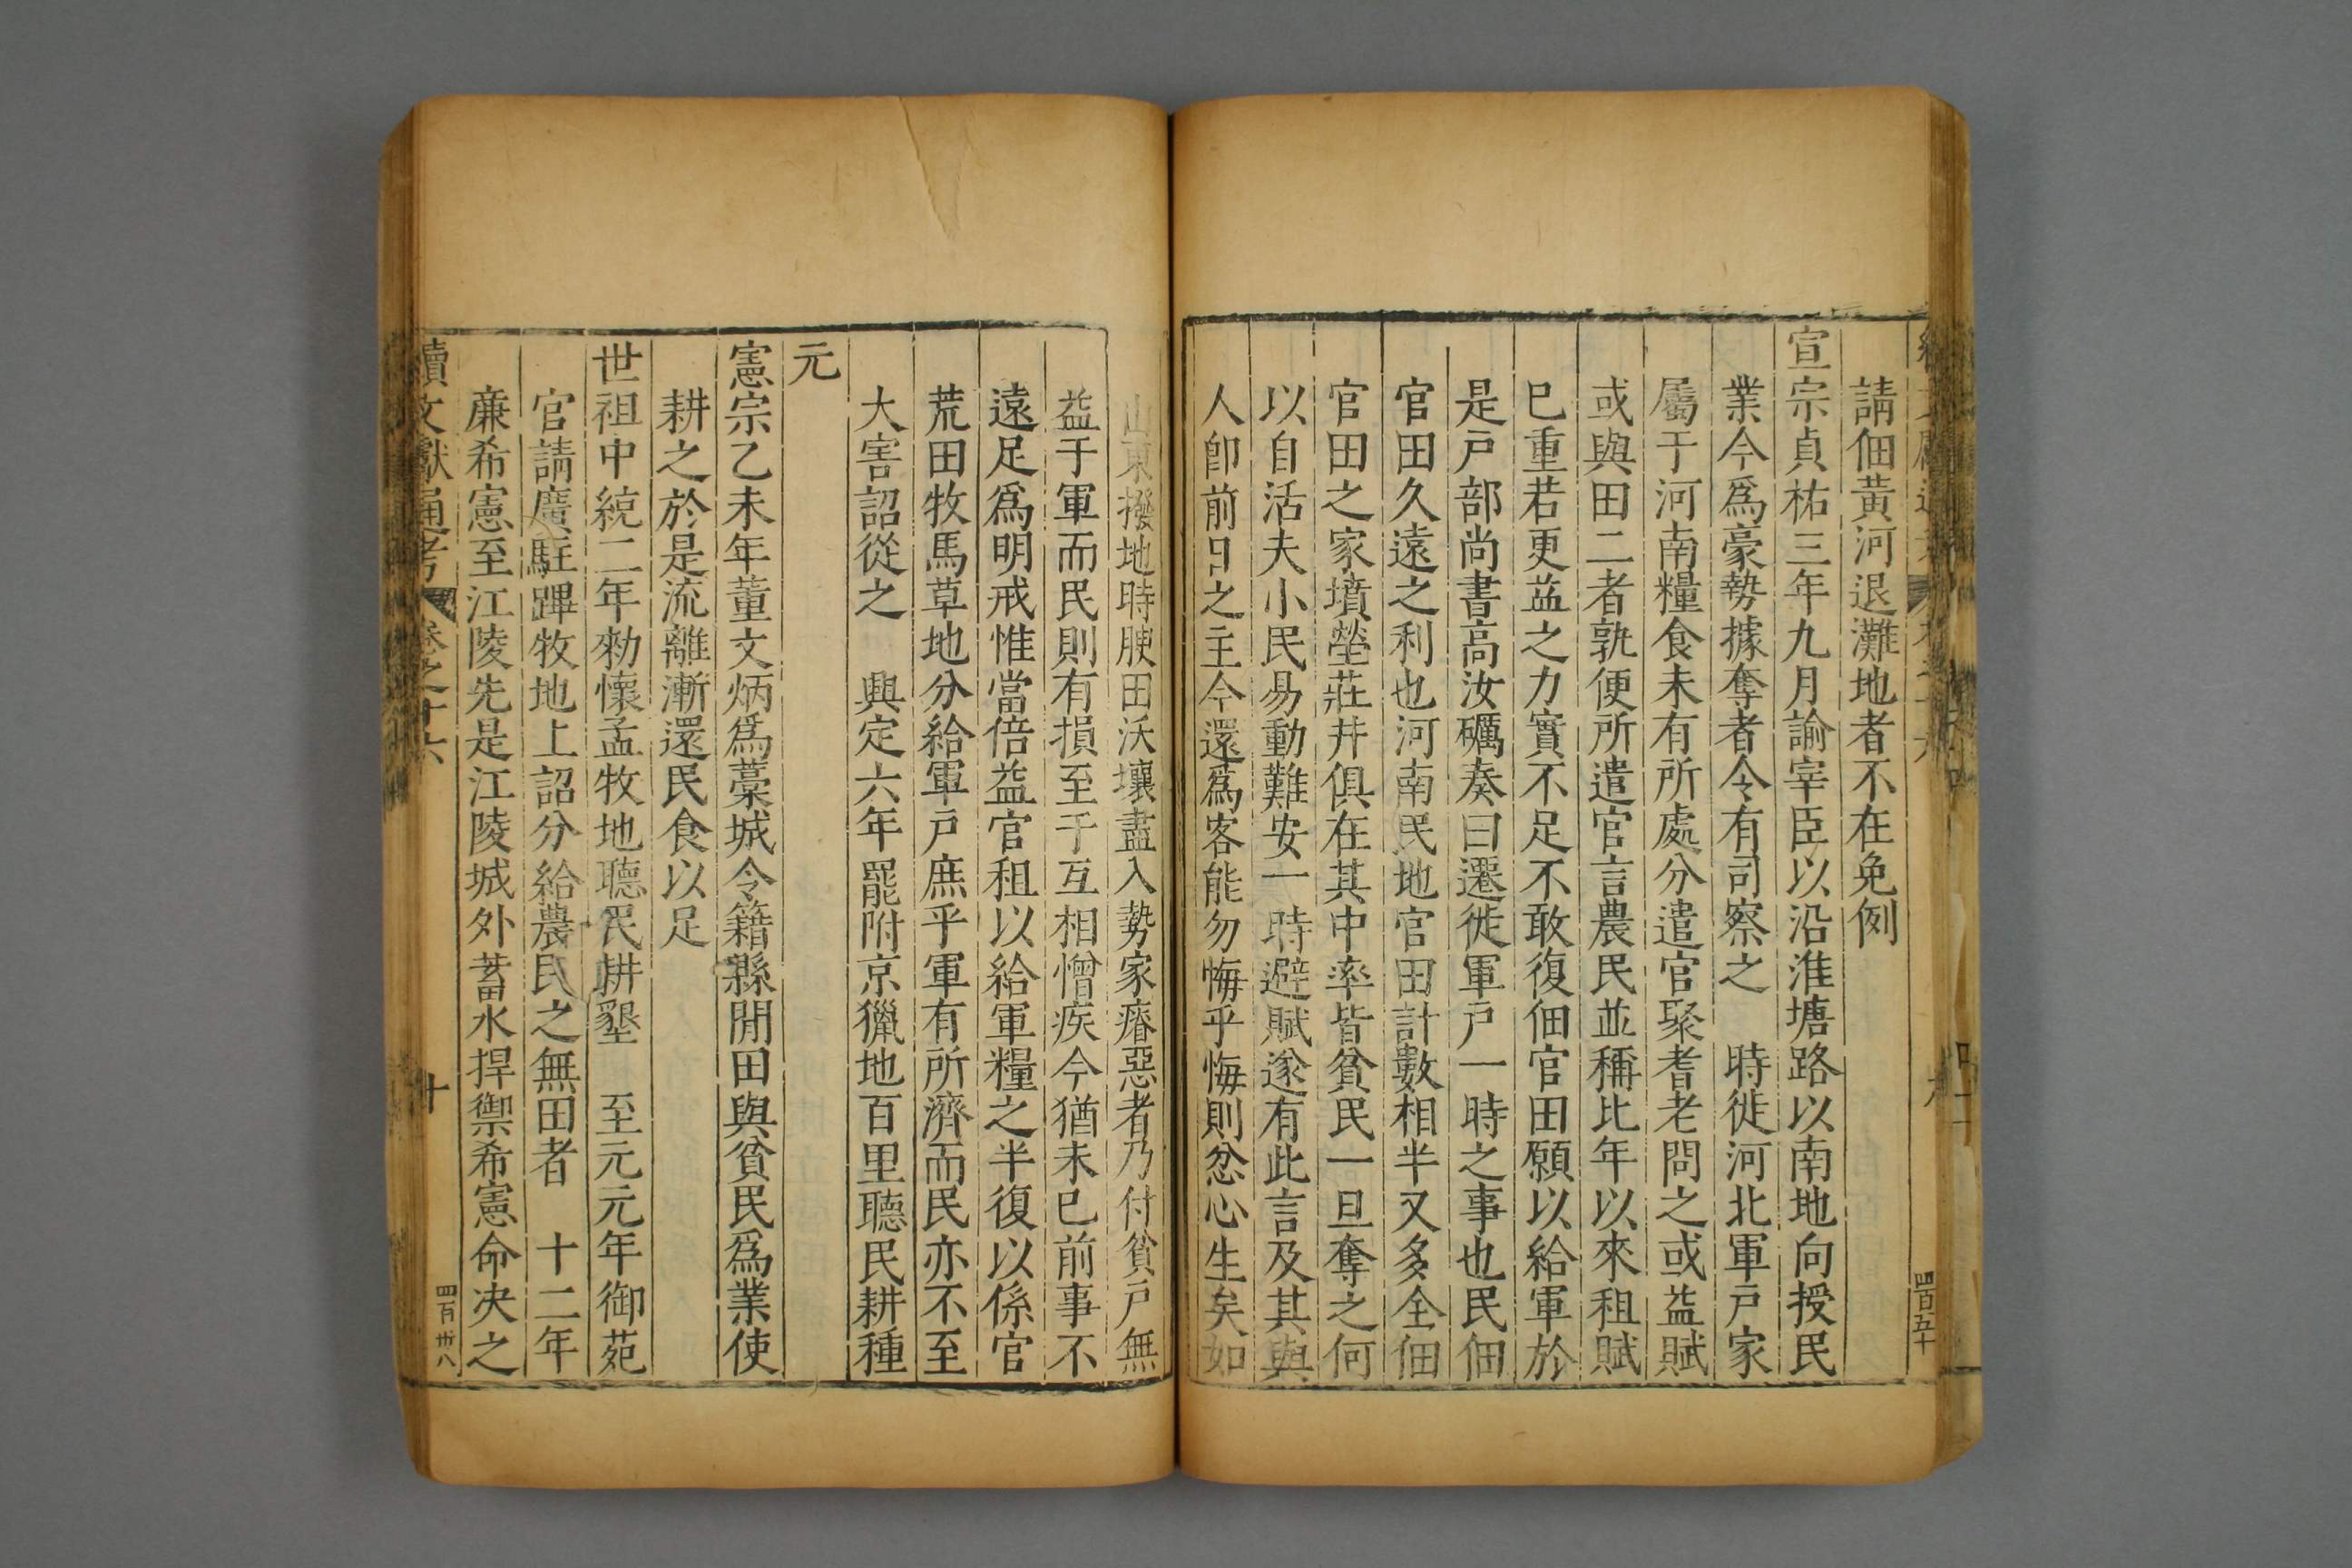 請佃黃河退灘地者不在免例
宣宗貞祐三年九月諭宰臣以沿淮塘路以南地向授民
業今為豪勢據奪者令有司察之　時徙河北軍戸家
屬于河南糧食未有所處分遣官聚耆老問之或益賦
或與田二者孰便所遣官言農民並稱比年以來租賦
已重若更益之力實不足不敢復佃官田願以給軍於
是戸部尚書高汝礪奏曰遷徙軍戸一時之事也民佃
官田久遠之利也河南民地官田計數相半又多全佃
官田之家墳塋莊井俱在其中率皆貧民一旦奪之何
以自活夫小民易動難安一時避賦遂有此言及其與
人卽前日之主今還為客能勿悔乎悔則忿心生矣如
四百五十
山東撥地時腴田沃壤盡入勢家瘠惡者乃付貧戸無
益于軍而民則有損至于互相憎疾今猶未已前事不
遠足為明戒惟當倍益官租以給軍糧之半復以係官
荒田牧馬草地分給軍戸庶乎軍有所濟而民亦不至
大害詔從之　興定六年罷附京獵地百里聽民耕種
元
憲宗乙未年董文炳為藁城令籍縣閒田與貧民為業使
耕之於是流離漸還民食以足
世祖中統二年勑懷孟牧地聽民耕墾　至元元年御苑
官請廣駐蹕牧地上詔分給農民之無田者　十二年
廉希憲至江陵先是江陵城外蓄水捍禦希憲命决之
續文獻通考　卷之十六　十
四百卅八